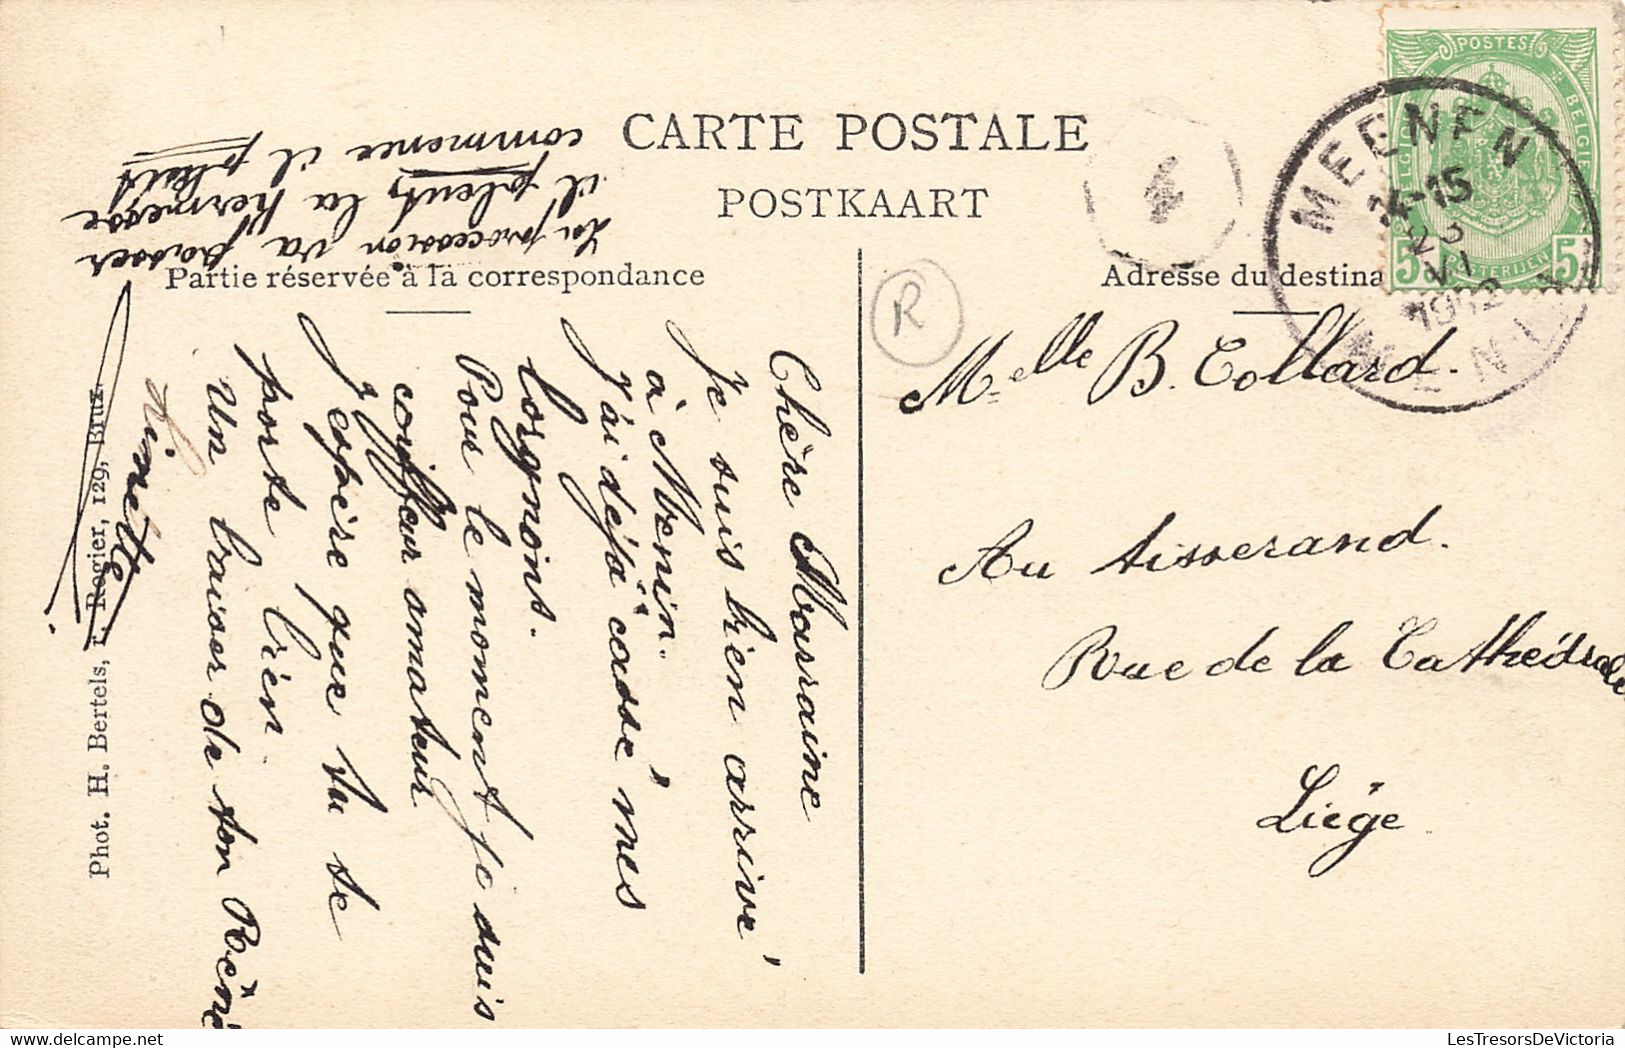 CARTE POSTALE
POSTKAART
Partie réservée à la correspondance
Adresse du destina
POSTES
BELGIQUE
BELGIE
5
5
POSTERIJEN
MEENEN
14-15
23
VI
1912
MENIN
R
M.elle B. Collard.
Au tisserand.
Rue de la Cathédrale
Liège
Chère Marraine
Je suis bien arrivé
à Menin.
J'ai déjà cassé mes
lorgnons.
Pour le moment je suis
coiffeur amateur
J'espère que tu se
porte bien.
Un baiser de ton René
Linette
La procession va passer
il pleut, la kermesse
commence il pleut
Phot. H. Bertels, r. Rogier, 129, Brux.
LesTresorsDeVictoria